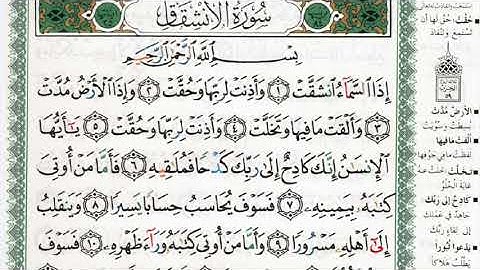 سُورَةُ الِانشِقَاقِ
بِسْمِ اللَّهِ الرَّحْمَٰنِ الرَّحِيمِ
إِذَا ٱلسَّمَآءُ ٱنشَقَّتْ ١ وَأَذِنَتْ لِرَبِّهَا وَحُقَّتْ ٢ وَإِذَا ٱلْأَرْضُ مُدَّتْ
٣ وَأَلْقَتْ مَا فِيهَا وَتَخَلَّتْ ٤ وَأَذِنَتْ لِرَبِّهَا وَحُقَّتْ ٥ يَٰٓأَيُّهَا
ٱلْإِنسَٰنُ إِنَّكَ كَادِحٌ إِلَىٰ رَبِّكَ كَدْحًا فَمُلَٰقِيهِ ٦ فَأَمَّا مَنْ أُوتِيَ
كِتَٰبَهُۥ بِيَمِينِهِۦ ٧ فَسَوْفَ يُحَاسَبُ حِسَابًا يَسِيرًا ٨ وَيَنقَلِبُ
إِلَىٰٓ أَهْلِهِۦ مَسْرُورًا ٩ وَأَمَّا مَنْ أُوتِيَ كِتَٰبَهُۥ وَرَآءَ ظَهْرِهِۦ ١٠ فَسَوْفَ
حُقَّتْ: حُقَّ لها أن
تستمع وتنقاد
الأرضُ مُدَّتْ
بُسِطَتْ وسُوِّيَتْ
ألْقَتْ ما فيها
لفظت ما في جوفها
تَخَلَّتْ: خلت عنه
غاية الخلُوِّ
كادِحٌ إلى ربِّك
جاهدٌ في عملك
إلى لقاء ربِّك
يدعوا ثُبُورًا
يطلب هلاكًا